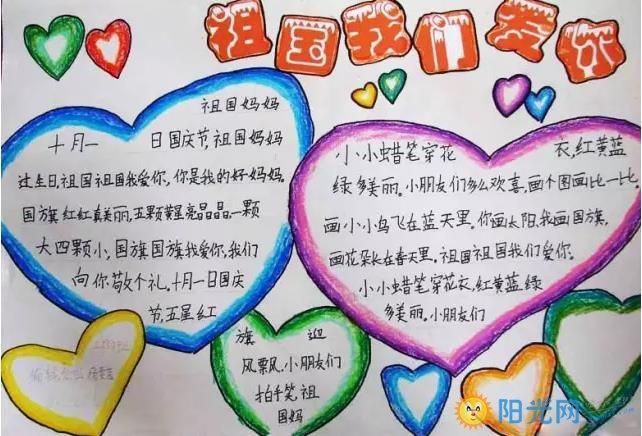 祖国我们爱你
祖国妈妈
十月一 日国庆节,祖国妈妈
过生日,祖国祖国我爱你,你是我的好妈妈。
国旗红红真美丽,五颗黄星亮晶晶。一颗
大四颗小,国旗国旗我爱你,我们
向你敬个礼,十月一日国庆
节,五星红
旗 迎
风飘,小朋友们
拍手笑,祖
国妈
小小蜡笔穿花 衣,红黄蓝
绿多美丽。小朋友们多么欢喜,画个图画比一比,
画小小鸟飞在蓝天里。你画太阳,我画国旗,
画花朵长在春天里,祖国祖国我们爱你。
小小蜡笔穿花衣,红黄蓝绿
多美丽,小朋友们
阳光网